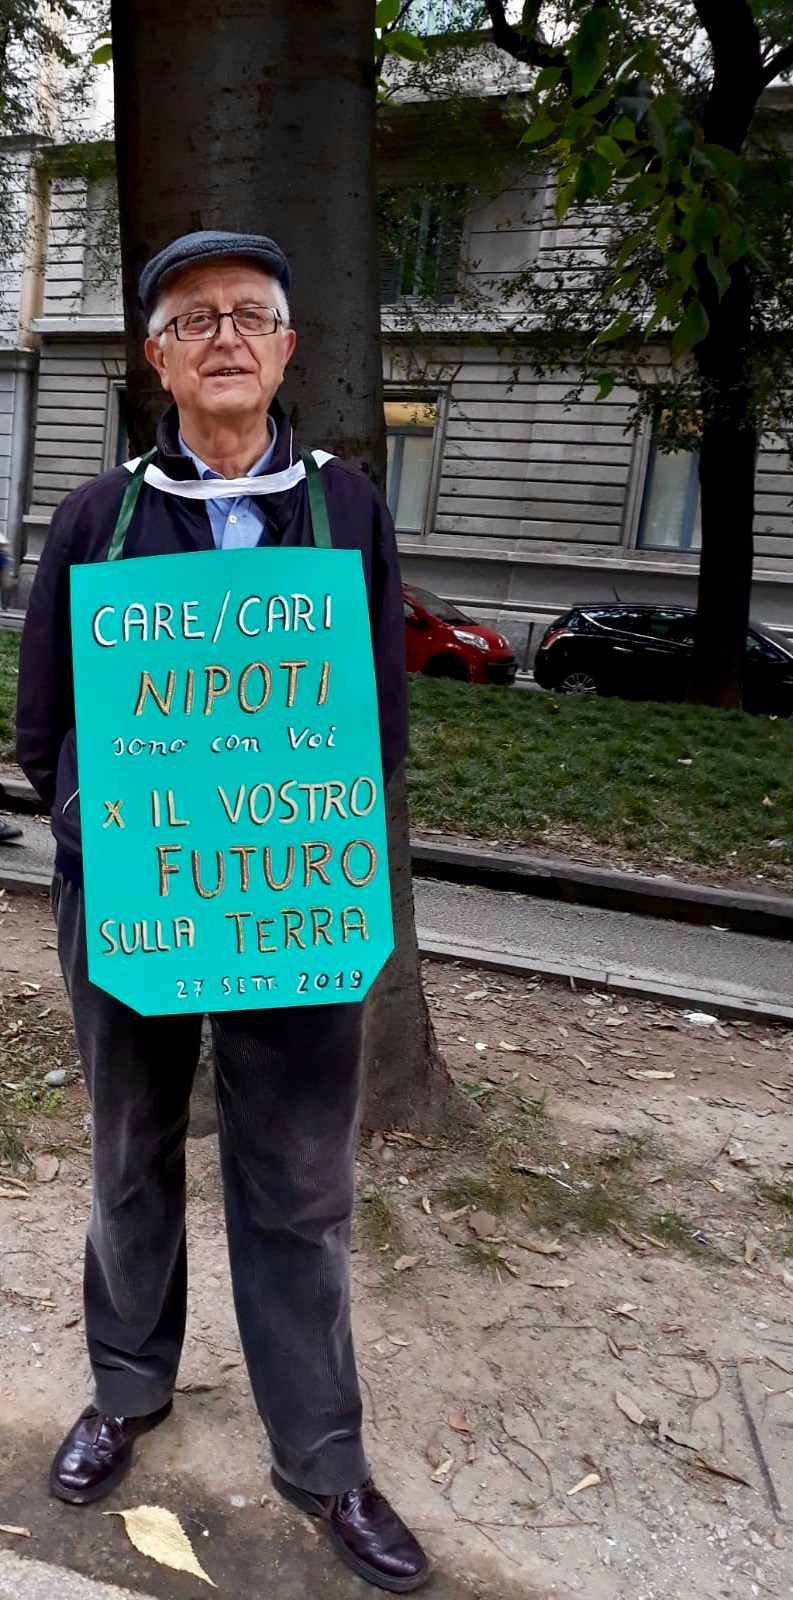 CARE/CARI
NIPOTI
sono con Voi
x IL VOSTRO
FUTURO
SULLA TERRA
27 SETT. 2019